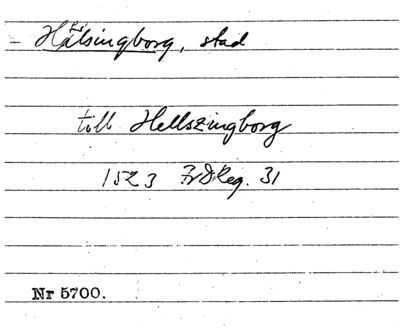 – Hälsingborg, stad
till Hellszingborg
1523 FrDReg. 31
Nr 5700.